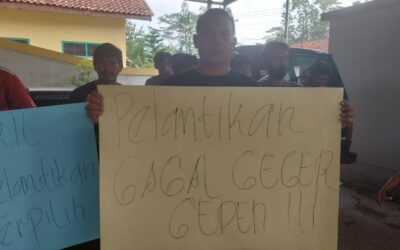 Pelantikan
GAGAL GEGER
GEDEN !!!
elantikan
erpilih